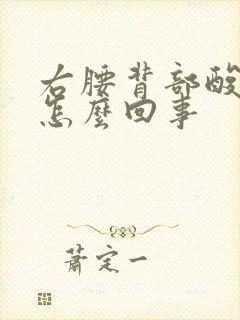 右腰背部酸
怎麼回事
蕭定一